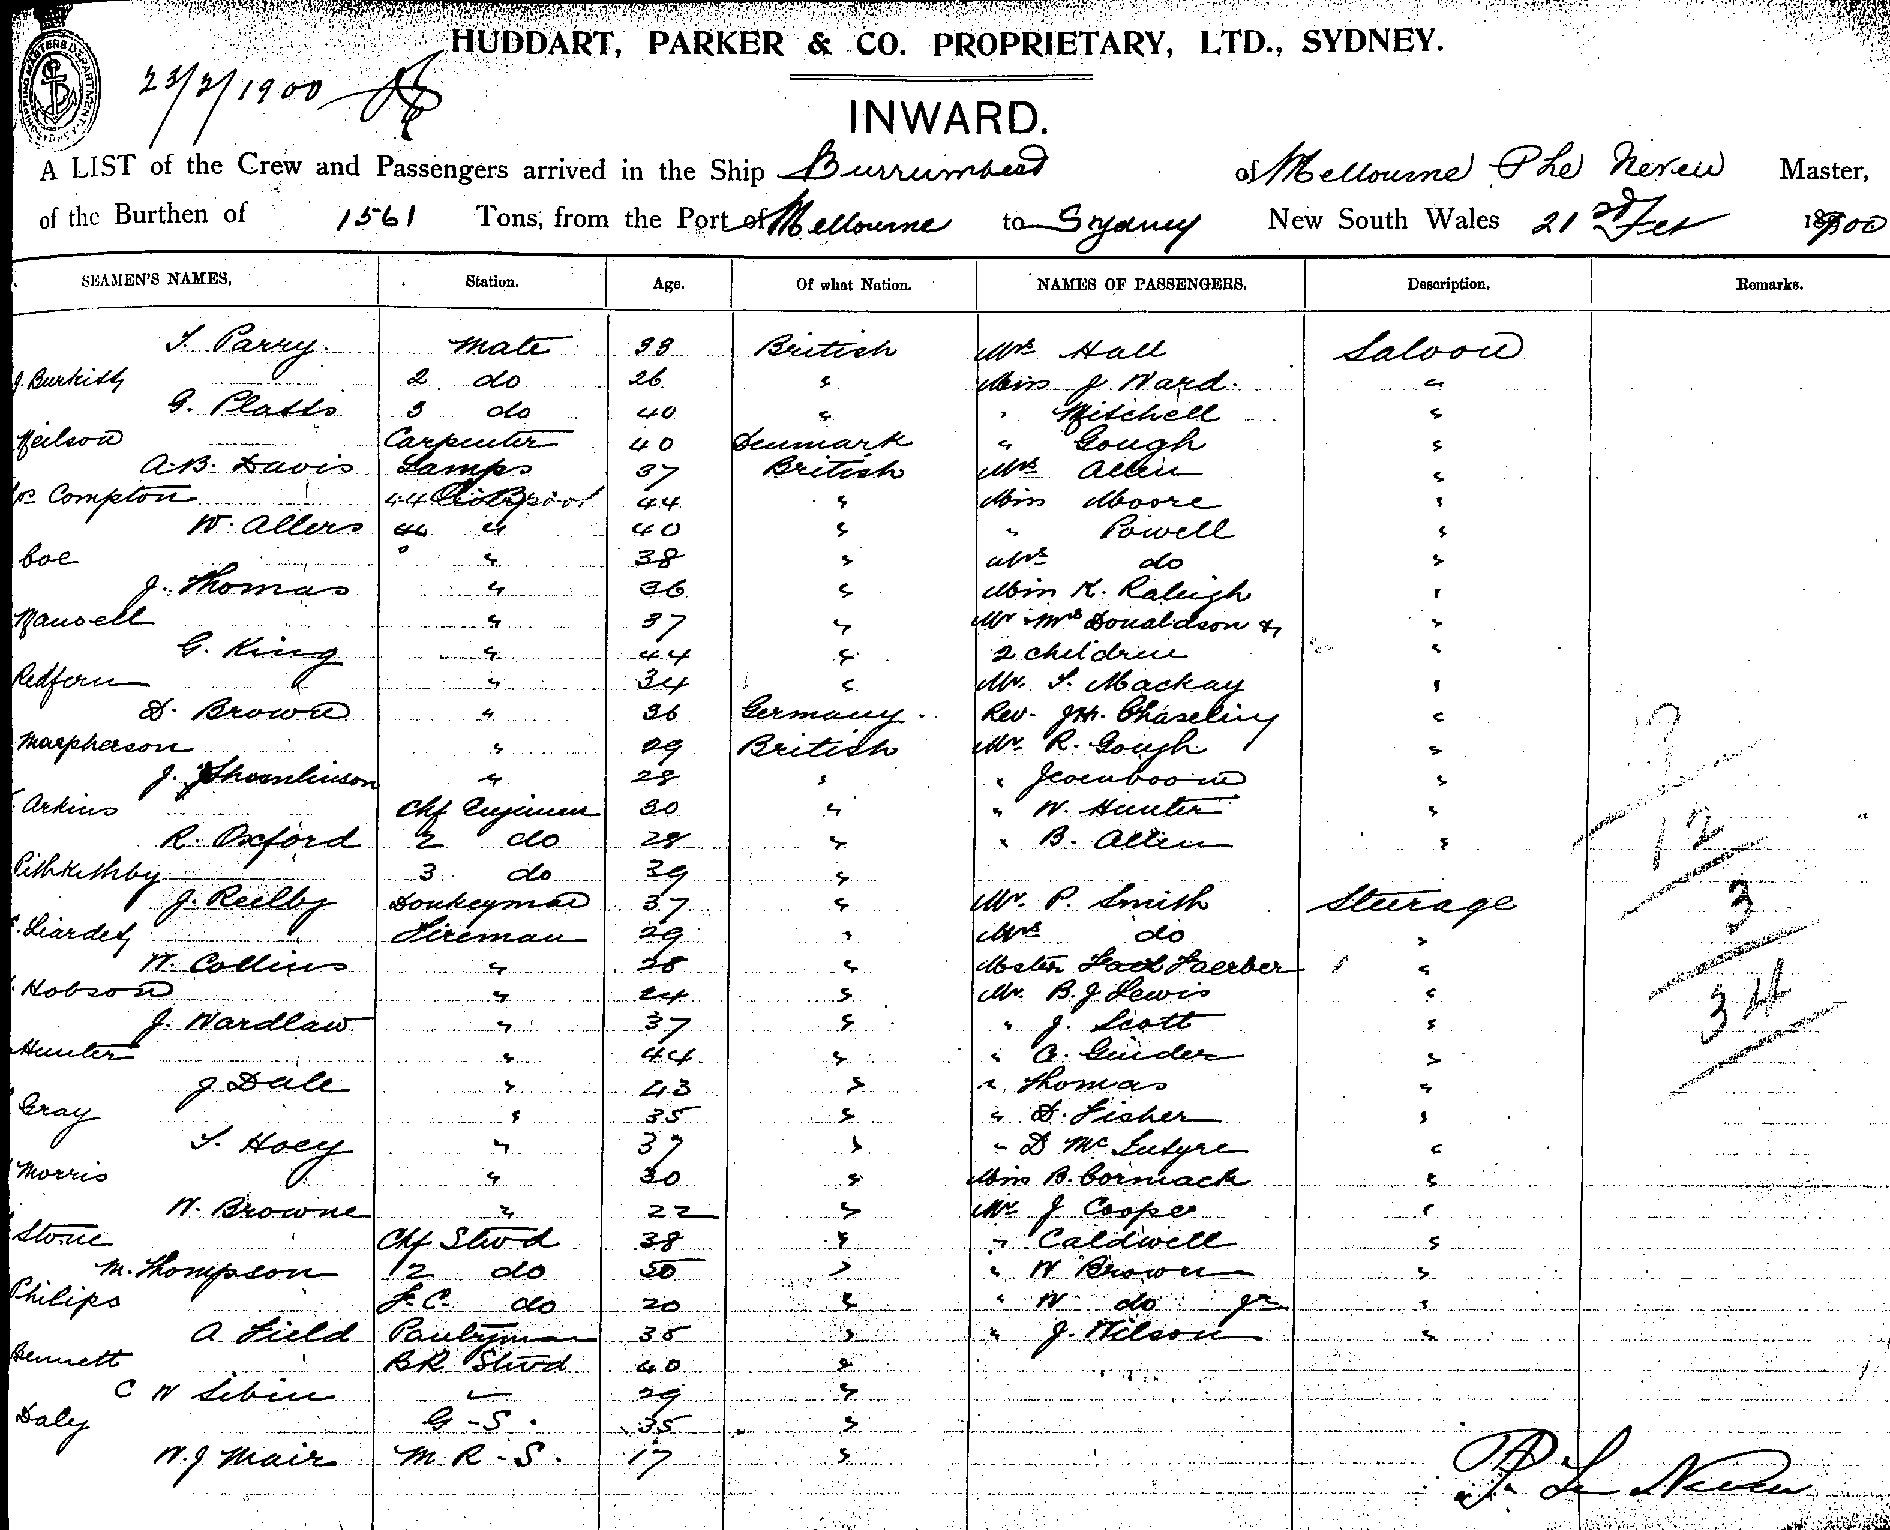 HUDDART, PARKER & CO. PROPRIETARY, LTD., SYDNEY.
23/2/1900
INWARD.
A LIST of the Crew and Passengers arrived in the Ship Burrumbeet of Melbourne Phe Neven Master,
of the Burthen of 1561 Tons, from the Port of Melbourne to Sydney New South Wales 21 Feb 1900
SEAMEN'S NAMES, Station. Age. Of what Nation. NAMES OF PASSENGERS. Description. Remarks.
T. Parry. Mate 33 British Mrs Hall Saloon
J. Burkitt 2 do 26 " Miss J Ward. "
G. Platts 3 do 40 " " Mitchell "
Neilson Carpenter 40 Denmark " Gough "
A.B. Davis Lamps 37 British Mrs Allen "
Compton 44 " Miss Moore "
W. Allers " 40 " " Powell "
Coe " 38 " Mrs do "
J. Thomas " 36 " Miss K. Raleigh "
Mansell " 37 " Mr & Mrs Donaldson &
G. King " 44 " 2 children "
Redfern " 34 " Mr. S. Mackay "
D. Brown " 36 Germany Rev. J.H. Chaseling "
Macpherson " 29 British Mr. R. Gough "
J. Thomlinson " 28 " " "
Arkins Chf Engineer 30 " " W. Hunter "
R. Oxford 2 do 28 " " B. Allen "
3 do 39 "
J. Reilby Donkeyman 37 " Mr. P. Smith Steerage
Liardet Fireman 29 " Mrs do "
W. Collins " 28 " Master Faerber 1 "
Hobson " 24 " Mr. B. J Lewis "
J. Wardlaw " 37 " " J. Scott "
Hunter " 44 " " C. Ginder "
J Dale " 43 " " Thomas "
Gray " 35 " " D. Fisher "
T. Hoey " 37 " " D McIntyre "
Morris " 30 " Miss B. Cormack "
W. Browne " 22 " Mr. J Cooper "
Stone Chf Stwd 38 " " Caldwell "
M. Thompson 2 do 50 " " W Brown "
Philips F.C. do 20 " " W do Jr "
A Field Pantryman 35 " " J. Wilson "
Bennett BR Stwd 40 "
C W Sibin " 29 "
Daly G-S. 35 "
W. J Mair M R-S. 17 "
12
3
34
P. Le Neven